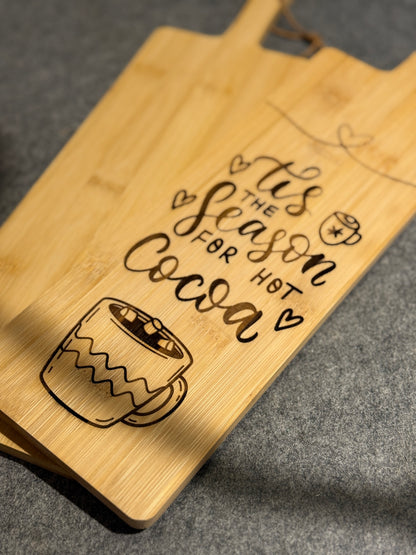 'tis
THE
Season
FOR HOT
Cocoa